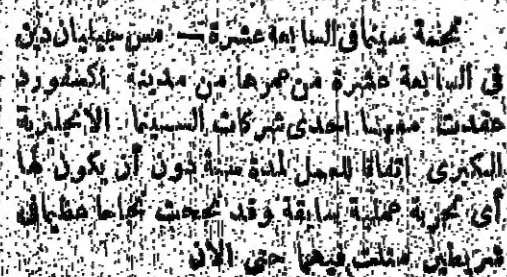 نجمة سينما في السابعة عشرة — مس جيليان دين
في السابعة عشرة من عمرها من مدينة اكسفورد
عقدت معها احدى شركات السينما الانجليزية
الكبرى اتفاقا للعمل لمدة سنة دون أن يكون لها
أي تجربة عملية سابقة وقد نجحت نجاحا عظيما في
شريطين مثلت فيهما حتى الآن